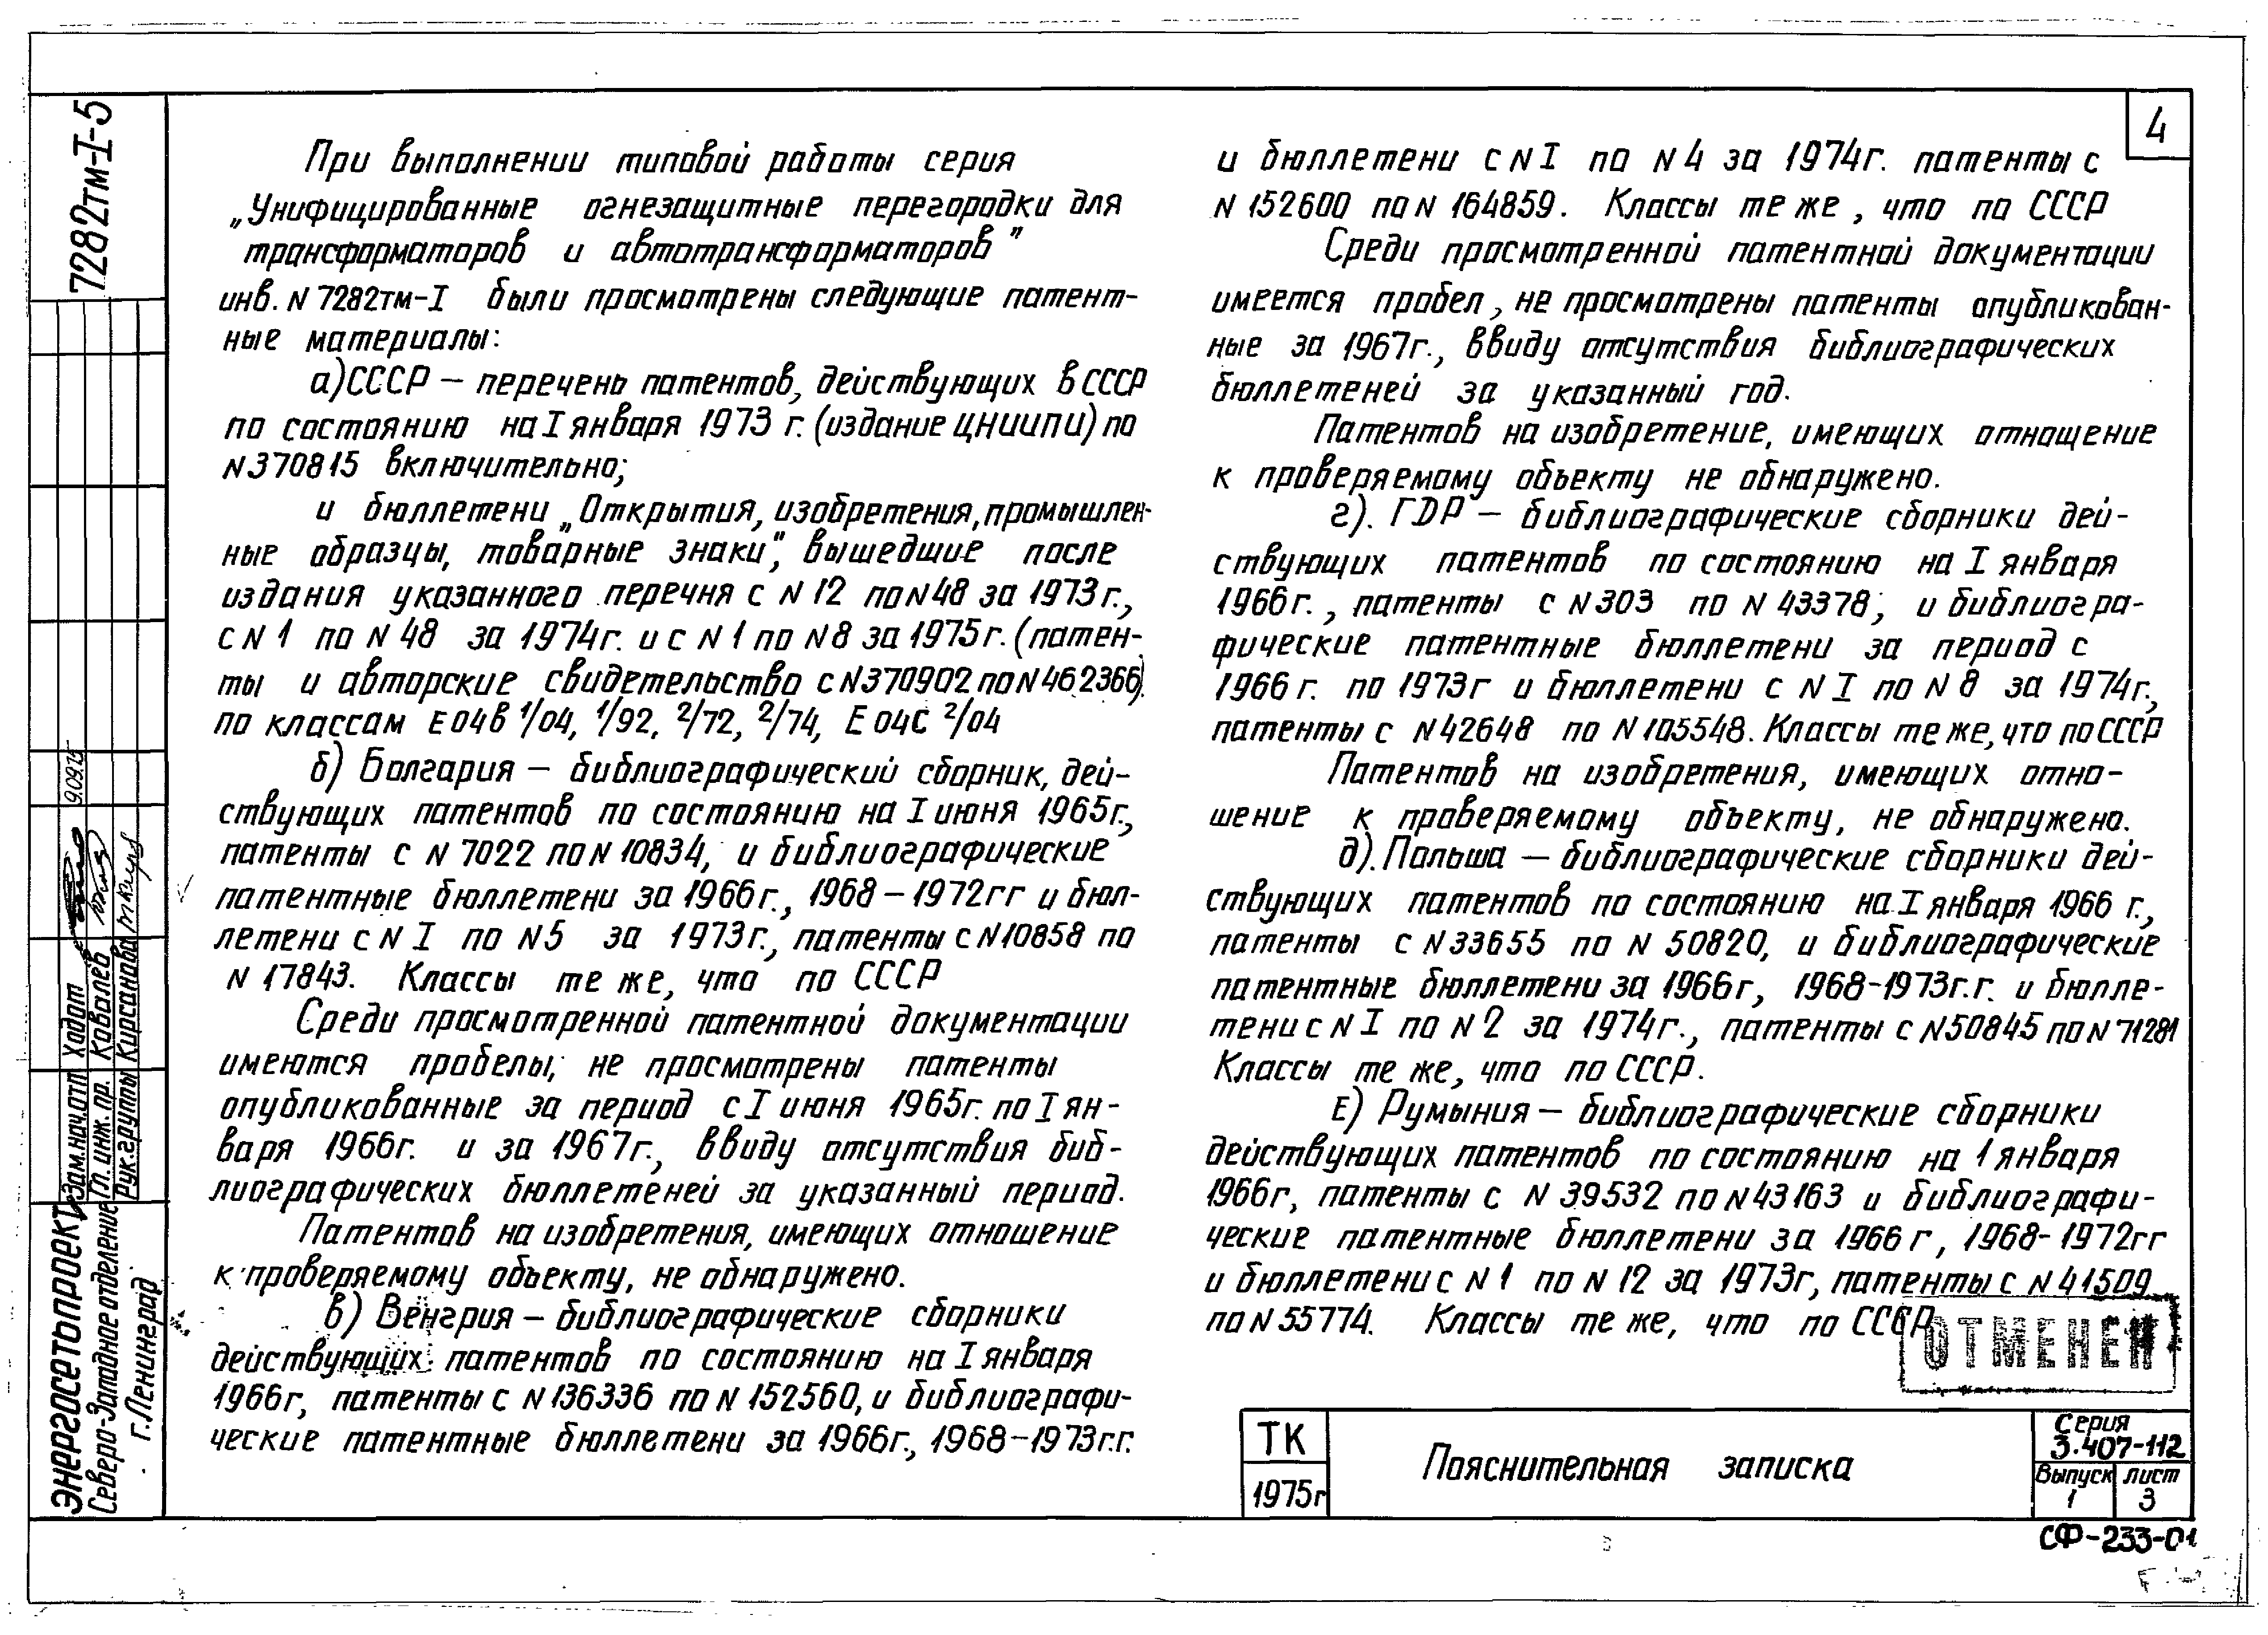 7282тм-I-5
4
При выполнении типовой работы серия
„Унифицированные огнезащитные перегородки для
трансформаторов и автотрансформаторов"
инв. N 7282тм-I были просмотрены следующие патент-
ные материалы:
а) СССР — перечень патентов, действующих в СССР
по состоянию на I января 1973 г. (издание ЦНИИПИ) по
N 370815 включительно;
и бюллетени „Открытия, изобретения, промышлен-
ные образцы, товарные знаки", вышедшие после
издания указанного перечня с N 12 по N 48 за 1973 г.,
с N 1 по N 48 за 1974г. и с N 1 по N 8 за 1975 г. (патен-
ты и авторские свидетельство с N 370902 по N 462366).
по классам Е 04В 1/04, 1/92, 2/72, 2/74, Е 04С 2/04
б) Болгария — библиографический сборник, дей-
ствующих патентов по состоянию на I июня 1965г.,
патенты с N 7022 по N 10834, и библиографические
патентные бюллетени за 1966 г., 1968 – 1972гг и бюл-
летени с N I по N 5 за 1973г., патенты с N 10858 по
N 17843. Классы те же, что по СССР
Среди просмотренной патентной документации
имеются пробелы; не просмотрены патенты
опубликованные за период с I июня 1965г. по I ян-
варя 1966г. и за 1967г., ввиду отсутствия биб-
лиографических бюллетеней за указанный период.
Патентов на изобретения, имеющих отношение
к проверяемому объекту, не обнаружено.
в) Венгрия – библиографические сборники
действующих патентов по состоянию на I января
1966г, патенты с N 136336 по N 152560, и библиографи-
ческие патентные бюллетени за 1966г., 1968–1973г.г.
и бюллетени с N I по N 4 за 1974г. патенты с
N 152600 по N 164859. Классы те же, что по СССР
Среди просмотренной патентной документации
имеется пробел, не просмотрены патенты опубликован-
ные за 1967г., ввиду отсутствия библиографических
бюллетеней за указанный год.
Патентов на изобретение, имеющих отнощение
к проверяемому объекту не обнаружено.
г). ГДР — библиографические сборники дей-
ствующих патентов по состоянию на I января
1966 г., патенты с N 303 по N 43378, и библиогра-
фические патентные бюллетени за период с
1966 г. по 1973г и бюллетени с N I по N 8 за 1974г.,
патенты с N 42648 по N 105548. Классы те же, что по СССР
Патентов на изобретения, имеющих отно-
шение к проверяемому объекту, не обнаружено.
д). Польша — библиографические сборники дей-
ствующих патентов по состоянию на I января 1966 г.,
патенты с N 33655 по N 50820, и библиографические
патентные бюллетени за 1966г, 1968–1973г.г. и бюлле-
тени с N I по N 2 за 1974г., патенты с N 50845 по N 71281
Классы те же, что по СССР.
Е) Румыния – библиографические сборники
действующих патентов по состоянию на 1 января
1966г, патенты с N 39532 по N 43163 и библиографи-
ческие патентные бюллетени за 1966 г, 1968-1972гг
и бюллетени с N 1 по N 12 за 1973г, патенты с N 41509
по N 55774. Классы те же, что по СССР
ОТМЕНЕН
9.09.75
Зам.нач.отп Ходот
Гл. инж. пр. Ковалёв
Рук.группы Кирсанова
Энергосетьпроект
Северо-Западное отделение
г. Ленинград
ТК
1975г
Пояснительная записка
Серия
3.407-112
Выпуск лист
1 3
СФ-233-01